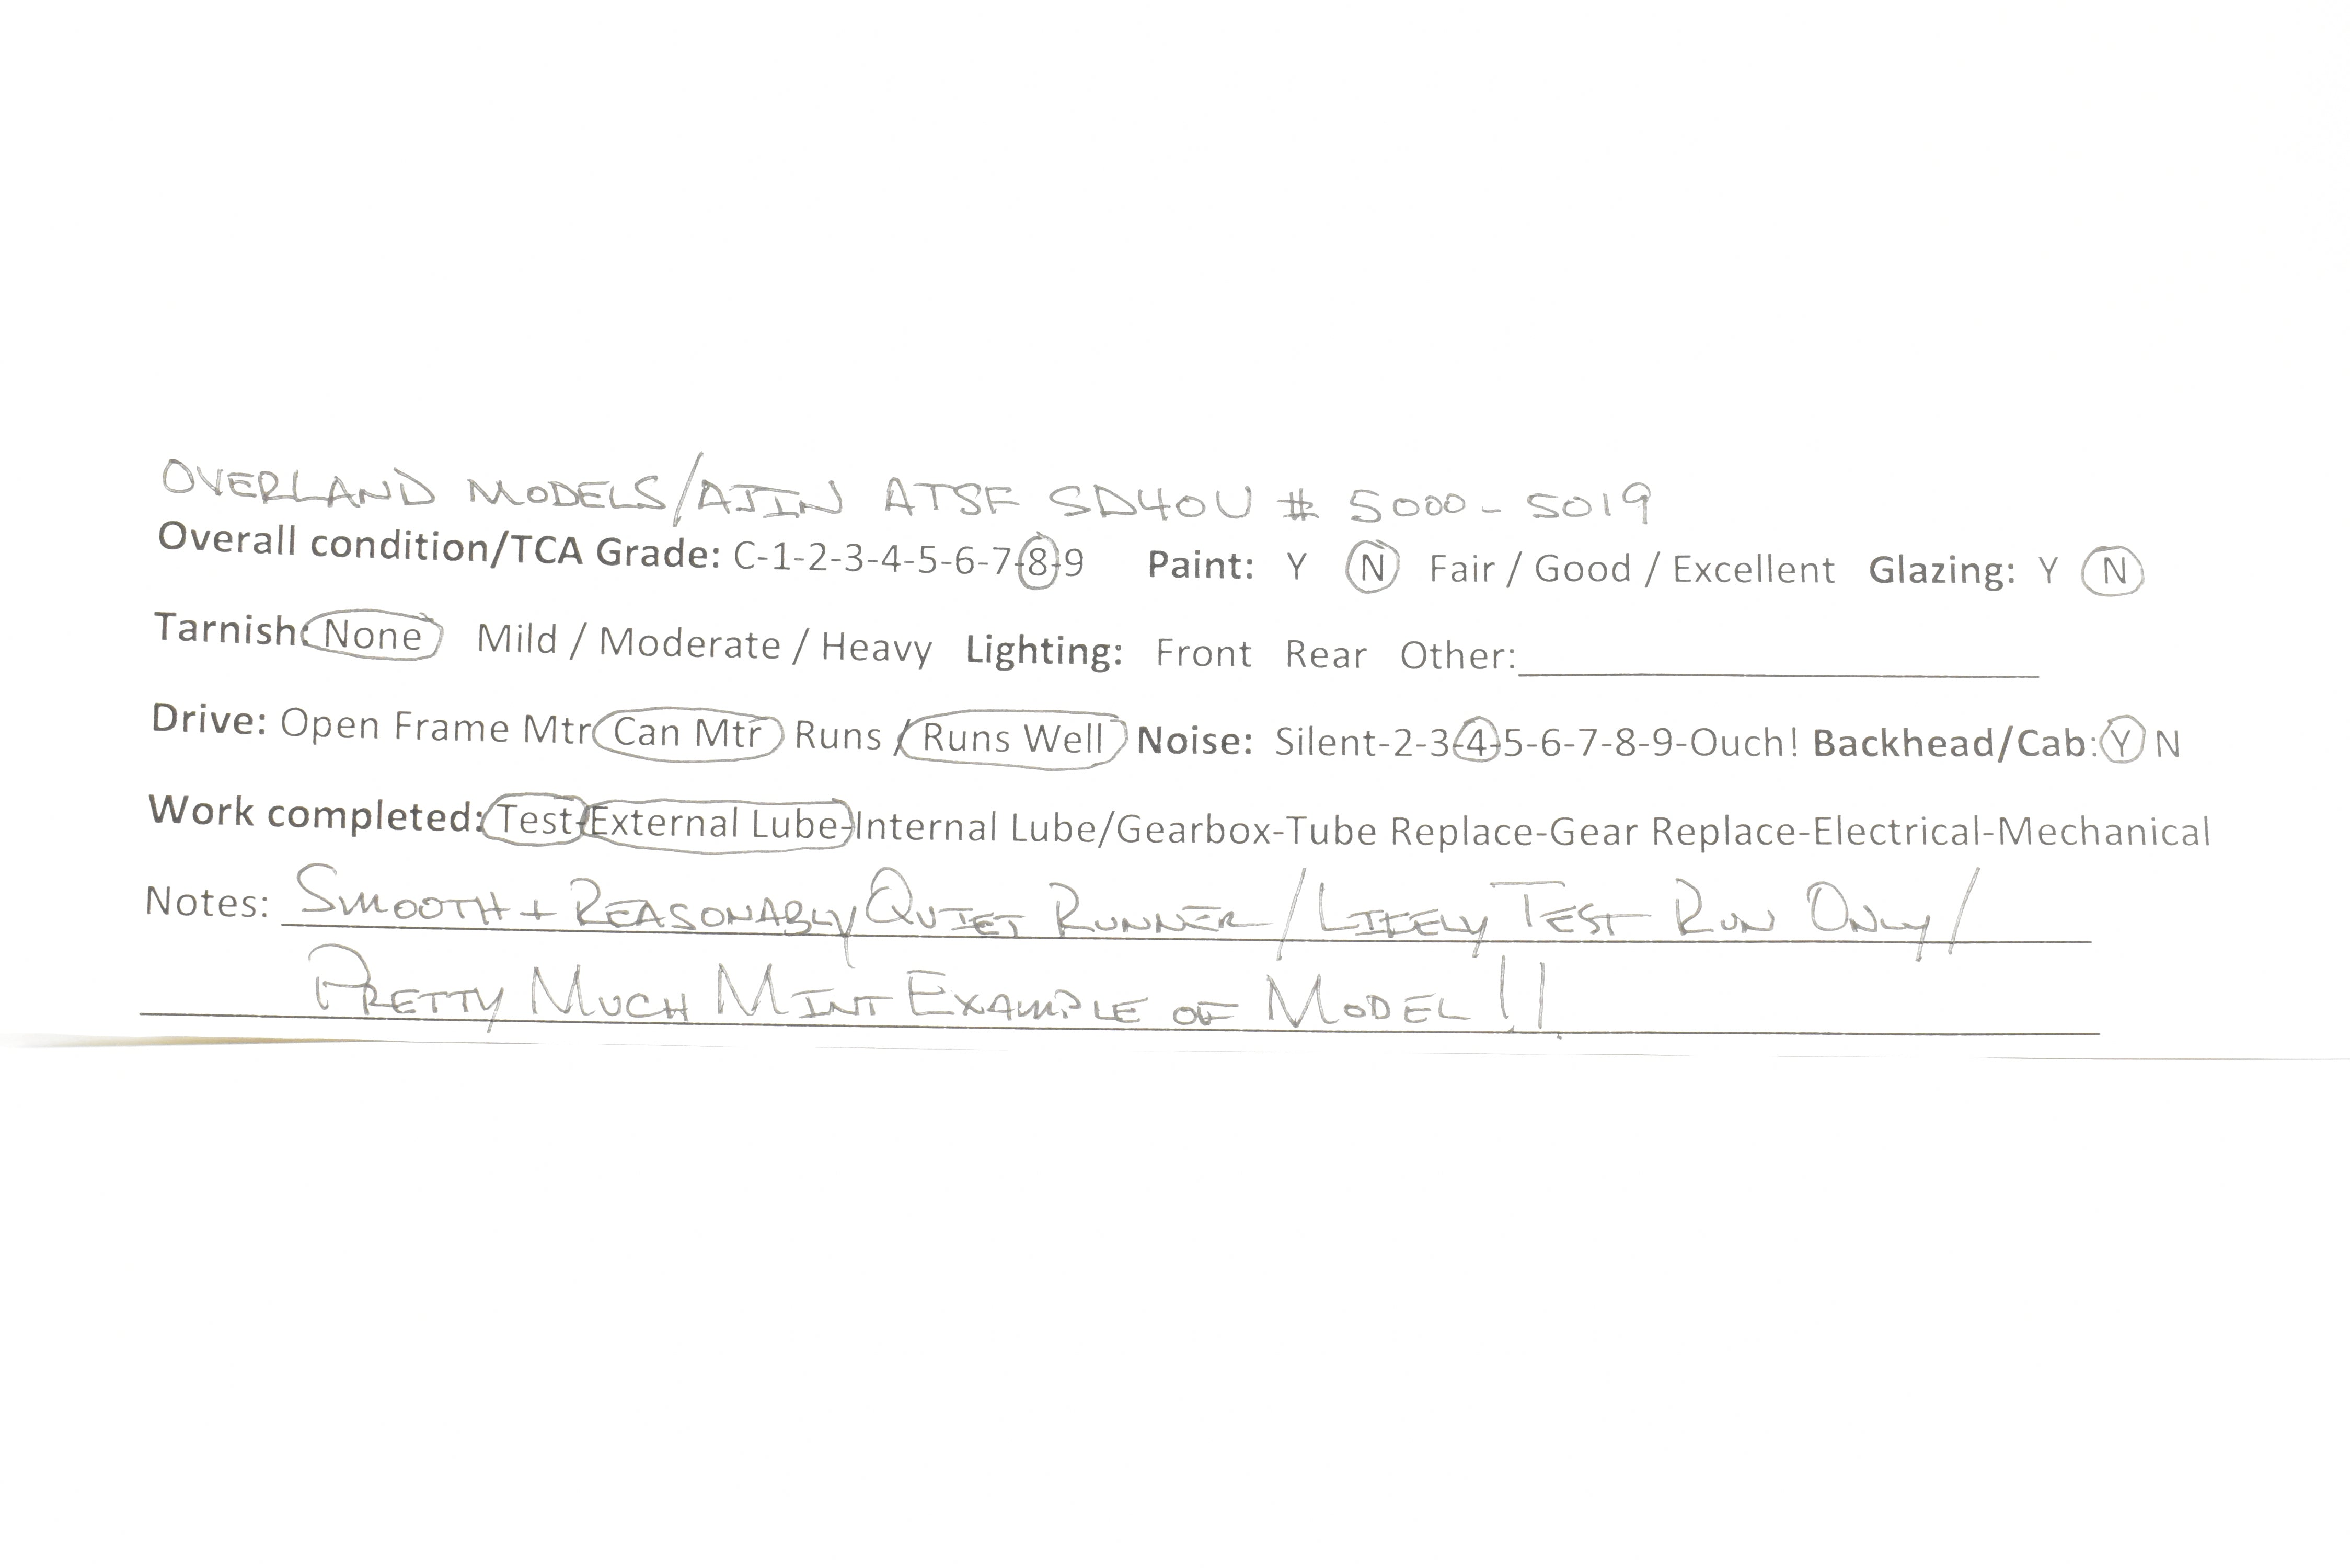 OVERLAND MODELS/AJIN ATSF SD40U # 5000-5019
Overall condition/TCA Grade: C-1-2-3-4-5-6-7-8-9 Paint: Y N Fair / Good / Excellent Glazing: Y N
Tarnish: None Mild / Moderate / Heavy Lighting: Front Rear Other:
Drive: Open Frame Mtr Can Mtr Runs / Runs Well Noise: Silent-2-3-4-5-6-7-8-9-Ouch! Backhead/Cab: Y N
Work completed: Test-External Lube-Internal Lube/Gearbox-Tube Replace-Gear Replace-Electrical-Mechanical
Notes: SMOOTH + REASONABLY QUIET RUNNER/LIKELY TEST RUN ONLY/
PRETTY MUCH MINT EXAMPLE OF MODEL!!